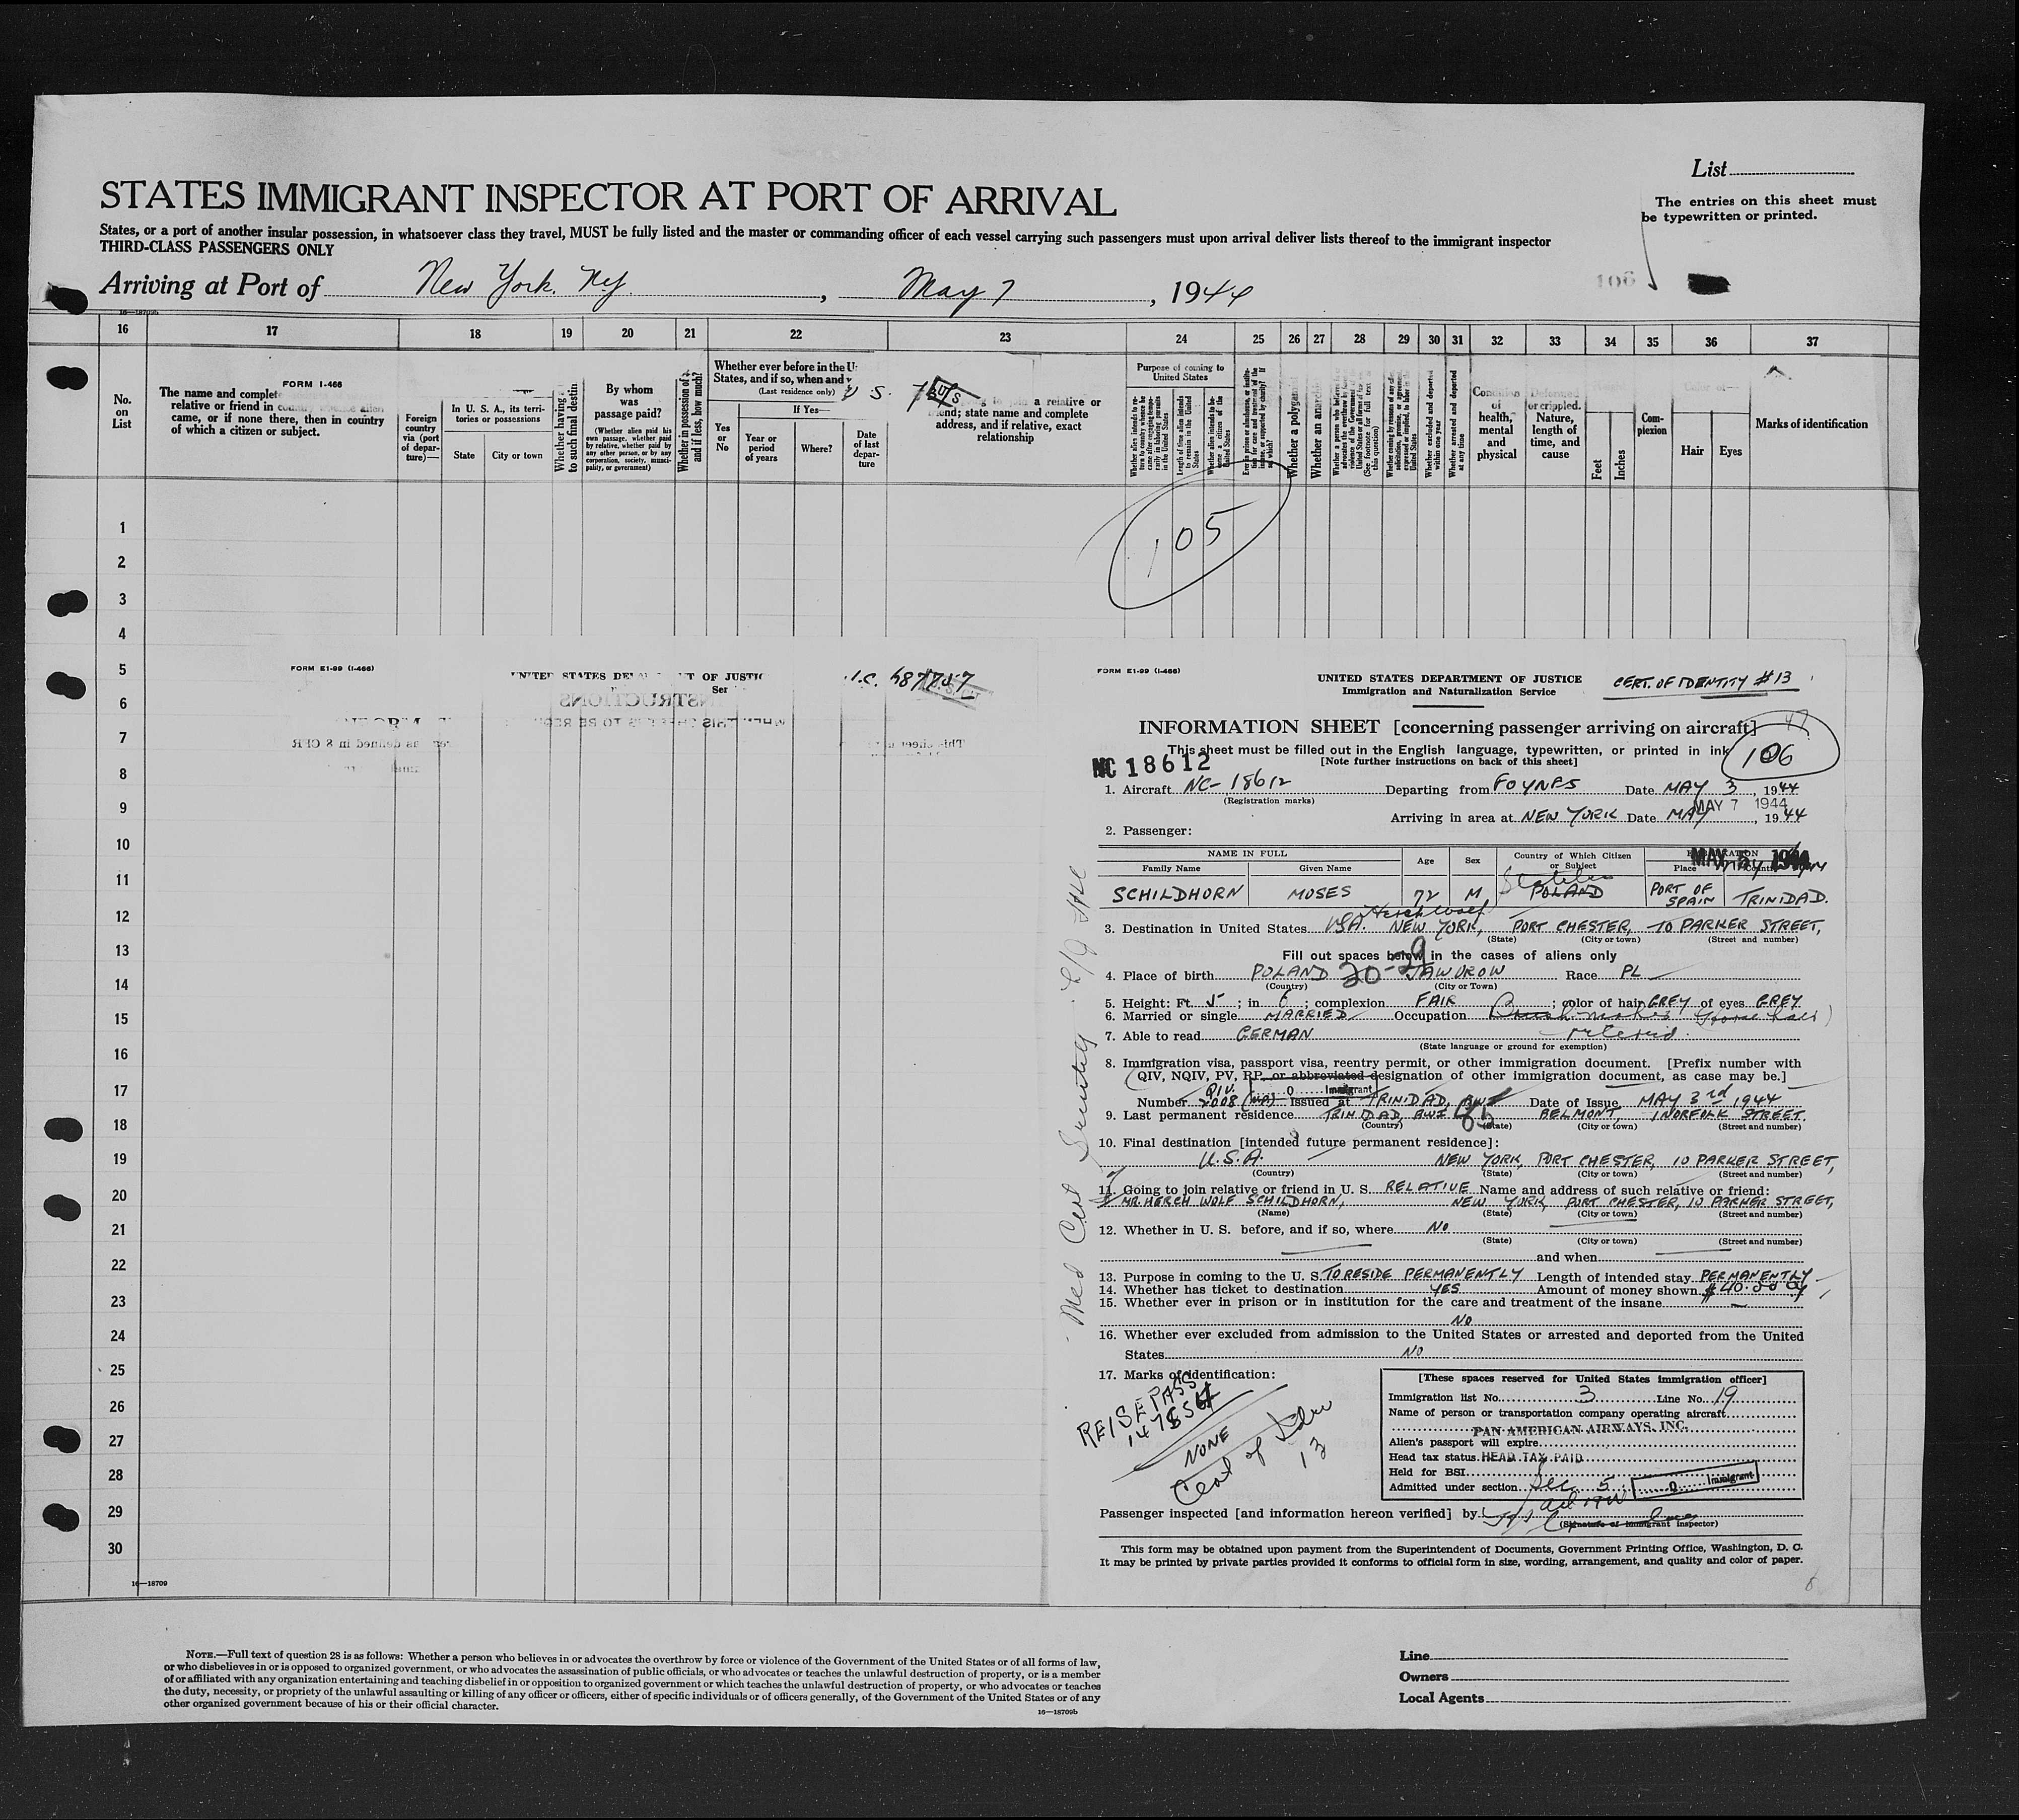 List
The entries on this sheet must
be typewritten or printed.
STATES IMMIGRANT INSPECTOR AT PORT OF ARRIVAL
States, or a port of another insular possession, in whatsoever class they travel, MUST be fully listed and the master or commanding officer of each vessel carrying such passengers must upon arrival deliver lists thereof to the immigrant inspector
THIRD-CLASS PASSENGERS ONLY
Arriving at Port of New York, NY, May 7, 1944
106
16 17 18 19 20 21 22 23 24 25 26 27 28 29 30 31 32 33 34 35 36 37
No. on List
FORM I-466
The name and complet
relative or friend in
came, or if none there, then in country
of which a citizen or subject.
Foreign country via (port of departure)—
In U. S. A., its territories or possessions
State
City or town
Whether having
to such final destin
By whom was passage paid?
(Whether alien paid his own passage, whether paid by relative, whether paid by any other person, or by any corporation, society, municipality, or government)
Whether in possession of
and if less, how much?
Whether ever before in the U.
States, and if so, when and
(Last residence only)
If Yes—
Yes or No
Year or period of years
Where?
Date of last departure
U. S.
a relative or
end; state name and complete
address, and if relative, exact
relationship
Purpose of coming to United States
Whether a polygam
Whether an anarch
Condition of health, mental and physical
Deformed or crippled. Nature, length of time, and cause
Feet
Inches
Complexion
Color of—
Hair
Eyes
Marks of identification
105
1
2
3
4
5
6
7
8
9
10
11
12
13
14
15
16
17
18
19
20
21
22
23
24
25
26
27
28
29
30
16—18709
FORM E1-99 (I-466)
UNITED STATES DE T OF JUSTIC
Ser
FORM E1-99 (I-466)
UNITED STATES DEPARTMENT OF JUSTICE
Immigration and Naturalization Service
CERT. OF IDENTITY #13
INFORMATION SHEET [concerning passenger arriving on aircraft]
47
106
This sheet must be filled out in the English language, typewritten, or printed in ink
[Note further instructions on back of this sheet]
NC 18612
1. Aircraft NC-18612 Departing from FOYNES Date MAY 3, 1944
(Registration marks)
MAY 7 1944
Arriving in area at NEW YORK Date MAY, 1944
2. Passenger:
NAME IN FULL
Family Name
Given Name
Age
Sex
Country of Which Citizen or Subject
Place
SCHILDHORN MOSES 72 M Stateless POLAND PORT OF SPAIN TRINIDAD.
Herch Wolf
3. Destination in United States USA. NEW YORK, PORT CHESTER, 10 PARKER STREET,
(State) (City or town) (Street and number)
Fill out spaces below in the cases of aliens only
4. Place of birth POLAND JAWUROW Race PL
30-29
(Country) (City or Town)
5. Height: Ft. 5; in 6; complexion FAIR; color of hair GREY of eyes GREY
6. Married or single MARRIED Occupation Brush maker (horse hair)
retired.
7. Able to read GERMAN
(State language or ground for exemption)
8. Immigration visa, passport visa, reentry permit, or other immigration document. [Prefix number with
QIV, NQIV, PV, RP, or abbreviated designation of other immigration document, as case may be.]
QIV. 0 Immigrant
Number 2008 Issued at TRINIDAD, BWI Date of Issue MAY 3rd 1944
9. Last permanent residence TRINIDAD, BWI BELMONT, 1 NORFOLK STREET.
(Country) (State) (City or town) (Street and number)
10. Final destination [intended future permanent residence]:
U.S.A. NEW YORK, PORT CHESTER, 10 PARKER STREET,
(Country) (State) (City or town) (Street and number)
11. Going to join relative or friend in U. S. RELATIVE Name and address of such relative or friend:
MR. HERCH WOLF SCHILDHORN, NEW YORK, PORT CHESTER, 10 PARKER STREET,
(Name) (State) (City or town) (Street and number)
12. Whether in U. S. before, and if so, where NO
(State) (City or town) (Street and number)
and when
13. Purpose in coming to the U. S. TO RESIDE PERMANENTLY Length of intended stay PERMANENTLY
14. Whether has ticket to destination YES Amount of money shown $40.00
15. Whether ever in prison or in institution for the care and treatment of the insane
NO
16. Whether ever excluded from admission to the United States or arrested and deported from the United
States NO
17. Marks of identification:
REISEPASS
NONE
Cert of Iden
13
Med Cert Senility
[These spaces reserved for United States immigration officer]
Immigration list No. 3 Line No. 19
Name of person or transportation company operating aircraft
PAN AMERICAN AIRWAYS, INC.
Alien's passport will expire
Head tax status HEAD TAX PAID
Held for BSI
Admitted under section Sec 5 0 Immigrant
Act 1924
Passenger inspected [and information hereon verified] by
(Signature of immigrant inspector)
This form may be obtained upon payment from the Superintendent of Documents, Government Printing Office, Washington, D. C.
It may be printed by private parties provided it conforms to official form in size, wording, arrangement, and quality and color of paper.
NOTE.—Full text of question 28 is as follows: Whether a person who believes in or advocates the overthrow by force or violence of the Government of the United States or of all forms of law,
or who disbelieves in or is opposed to organized government, or who advocates the assassination of public officials, or who advocates or teaches the unlawful destruction of property, or is a member
of or affiliated with any organization entertaining and teaching disbelief in or opposition to organized government or which teaches the unlawful destruction of property, or who advocates or teaches
the duty, necessity, or propriety of the unlawful assaulting or killing of any officer or officers, either of specific individuals or of officers generally, of the Government of the United States or of any
other organized government because of his or their official character.
16—18709b
Line
Owners
Local Agents